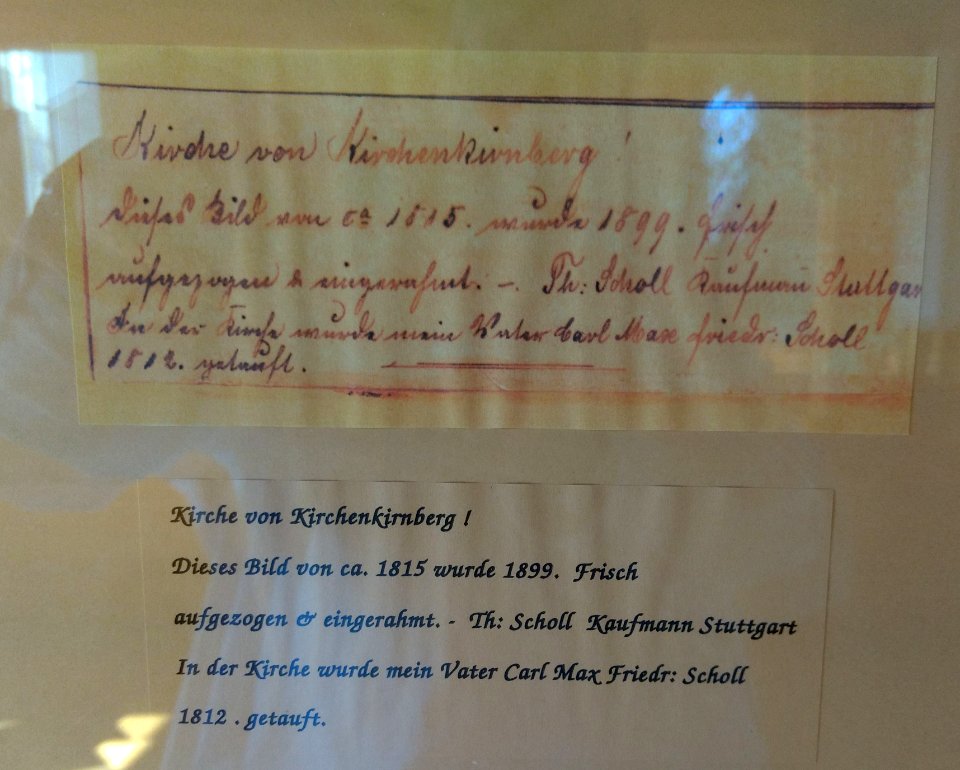 Kirche von Kirchenkirnberg !
Dieses Bild von ca 1815. wurde 1899. frisch
aufgezogen & eingerahmt. -. Th: Scholl Kaufmann Stuttgar
In der Kirche wurde mein Vater Carl Max Friedr: Scholl
1812. getauft.
Kirche von Kirchenkirnberg !
Dieses Bild von ca. 1815 wurde 1899. Frisch
aufgezogen & eingerahmt. - Th: Scholl Kaufmann Stuttgart
In der Kirche wurde mein Vater Carl Max Friedr: Scholl
1812 . getauft.